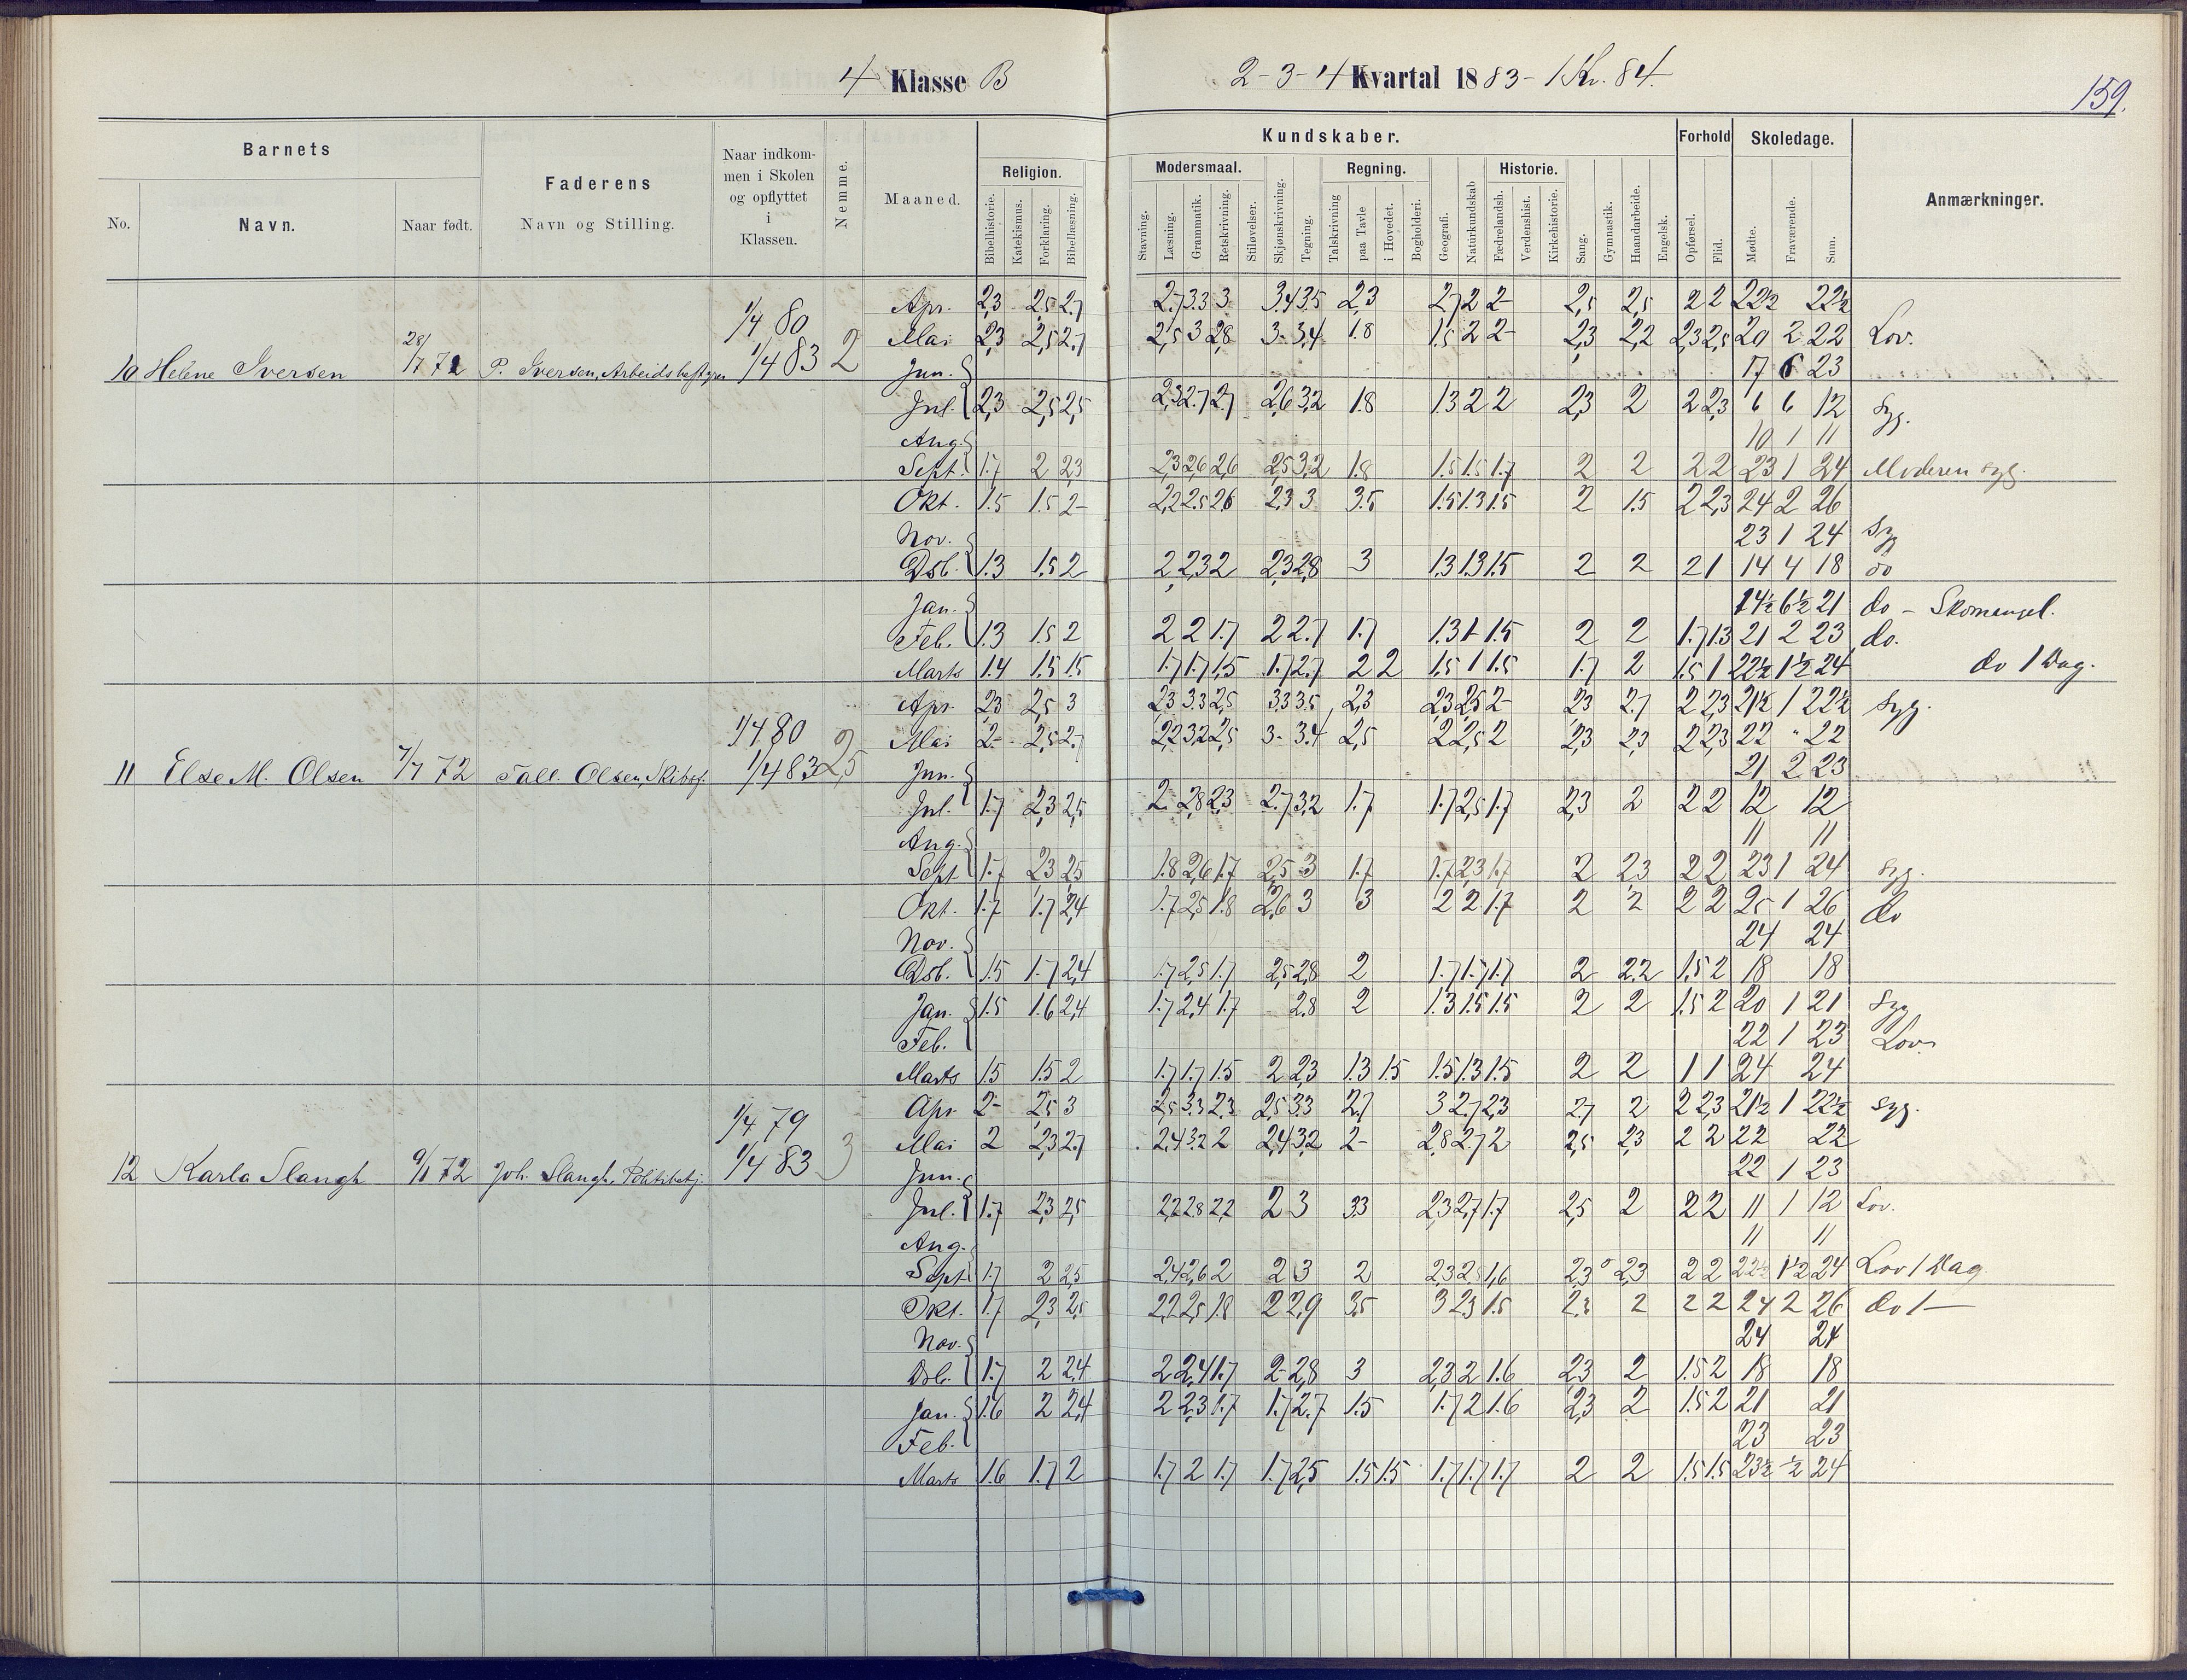 4 Klasse B
2-3-4 Kvartal 1883-1 Kv. 84.
159.
Barnets
No.
Navn.
Naar født.
Faderens
Navn og Stilling.
Naar indkom-
men i Skolen
og opflyttet
i
Klassen.
Nemme.
Maaned.
Kundskaber.
Religion.
Bibelhistorie. Katekismus. Forklaring. Bibellæsning.
Modersmaal.
Stavning. Læsning. Grammatik. Retskrivning. Stiløvelser.
Skjønskrivning. Tegning.
Regning.
Talskrivning paa Tavle i Hovedet. Bogholderi.
Geografi. Naturkundskab
Historie.
Fædrelandsh. Verdenshist. Kirkehistorie.
Sang. Gymnastik. Haandarbeide. Engelsk.
Forhold
Opførsel. Flid.
Skoledage.
Mødte. Fraværende. Sum.
Anmærkninger.
10 Helene Iversen 28/7 72 P. Iversen, 1/4 80 1/4 83 2
Apr. 2,3 2,5 2.7 2.7 3.3 3 3.4 3.5 2,3 2,7 2 2- 2,5 2,5 2 2 22½ 22½
Mai 2,3 2,5 2.7 2,5 3 2,8 3- 3,4 1.8 1.5 2 2- 2,3 2,2 2,3 2,5 20 2 22 Lov.
Jun. 17 6 23
Jul. 2,3 2,5 2,5 2,3 2.7 2,7 2,6 3,2 1.8 1.3 2 2 2,3 2 2 2,3 6 6 12 Syg.
Aug. 10 1 11
Sept. 1.7 2 2,3 2,3 2,6 2,6 2,5 3,2 1.8 1.5 1.5 1.7 2 2 2 2 23 1 24 Moderen syg.
Okt. 1.5 1.5 2- 2,2 2.5 2,6 2,3 3 3.5 1.5 1.3 1.5 2 1.5 2 2,3 24 2 26
Nov. 23 1 24 Syg
Dsb. 1.3 1.5 2 2 2,3 2 2,3 2,8 3 1.3 1.3 1.5 2 2 2 1 14 4 18 do
Jan. 14½ 6½ 21 do - Skomangel.
Feb. 1.3 1.5 2 2 2 1.7 2 2.7 1.7 1.3 1- 1.5 2 2 1.7 1.3 21 2 23 do.
Marts 1.4 1.5 1.5 1.7 1.7 1.5 1.7 2.7 2 2 1.5 1 1.5 1.7 2 1.5 1 22½ 1½ 24 do 1 Dag.
11 Else M. Olsen 7/7 72 Tall. Olsen, 1/4 80 1/4 83 2,5
Apr. 2,3 2,5 3 2,3 3.3 2,5 3.3 3.5 2,3 2,3 2,5 2- 2,3 2.7 2 2,3 21½ 1 22½ Syg.
Mai 2- 2,5 2.7 2,2 3,2 2,5 3- 3.4 2,5 2 2,5 2 2,3 2,3 2 2,3 22 " 22
Jun. 21 2 23
Jul. 1.7 2,3 2,5 2 2,8 2,3 2.7 3,2 1.7 1.7 2,5 1.7 2,3 2 2 2 12 12
Aug. 11 11
Sept 1.7 2,3 2,5 1.8 2,6 1.7 2,5 3 1.7 1.7 2,3 1.7 2 2,3 2 2 23 1 24 Syg.
Okt. 1.7 1.7 2,4 1.7 2,5 1.8 2,6 3 3 2 2 1.7 2 2 2 2 25 1 26 do
Nov. 24 24
Dsb. 1.5 1.7 2,4 1.7 2,5 1.7 2,5 2,8 2 1.7 1.7 1.7 2 2.2 1.5 2 18 18
Jan. 1.5 1.6 2,4 1.7 2,4 1.7 2.8 2 1.3 1.5 1.5 2 2 1.5 2 20 1 21 Syg
Feb. 22 1 23 Lov.
Marts 1.5 1.5 2 1.7 1.7 1.5 2 2,3 1.3 1.5 1.5 1.3 1.5 2 2 1 1 24 24
12 Karla Slangh 9/1 72 Joh. Slangh, Politibetj. 1/4 79 1/4 83 3
Apr. 2- 2,5 3 2,5 3.3 2,3 2,5 3.3 2.7 3 2.7 2,3 2.7 2 2 2,3 21½ 1 22½ Syg.
Mai 2 2,3 2.7 2,4 3.2 2 2,4 3,2 2- 2,8 2.7 2 2,5 2,3 2 2 22 22
Jun. 22 1 23
Jul. 1.7 2,3 2,5 2,2 2.8 2,2 2 3 3.3 2,3 2,7 1.7 2,5 2 2 2 11 1 12 Lov.
Aug. 11 11
Sept 1.7 2 2,5 2,4 2,6 2 2 3 2 2,3 2,5 1,6 2,3 2,3 2 2 22½ 1½ 24 Lov 1 Dag
Okt. 1.7 2,3 2,5 2,2 2,5 1.8 2 2,9 3.5 3 2,3 1.5 2,3 2 2 2 24 2 26 do 1 —
Nov. 24 24
Dsb. 1.7 2 2,4 2 2,4 1.7 2- 2,8 3 2,3 2 1.6 2,3 2 1.5 2 18 18
Jan. 1.6 2 2,4 2 2,3 1.7 1.7 2.7 1.5 1.7 2 1.6 2,3 2 1.5 2 21 21
Feb. 23 23
Marts 1.6 1.7 2 1.7 2 1.7 1.7 2,5 1.5 1.5 1.7 1.7 1.7 2 2 1.5 1.5 23½ ½ 24